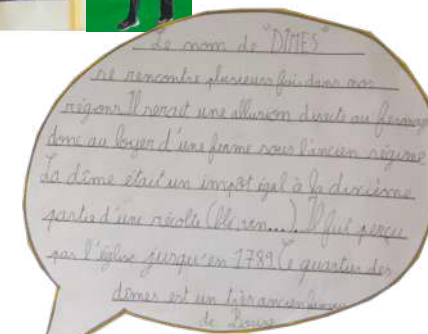 Le nom de "DÎMES"
se rencontre plusieurs fois dans nos
régions Il serait une allusion directe au fermage
donc au loyer d'une ferme sous l'ancien régime
La dîme était un impôt égal à la dixième
partie d'une récolte (blé, vin...). Il fut perçu
par l'église jusqu'en 1789 Le quartier des
dîmes est un très ancien
de